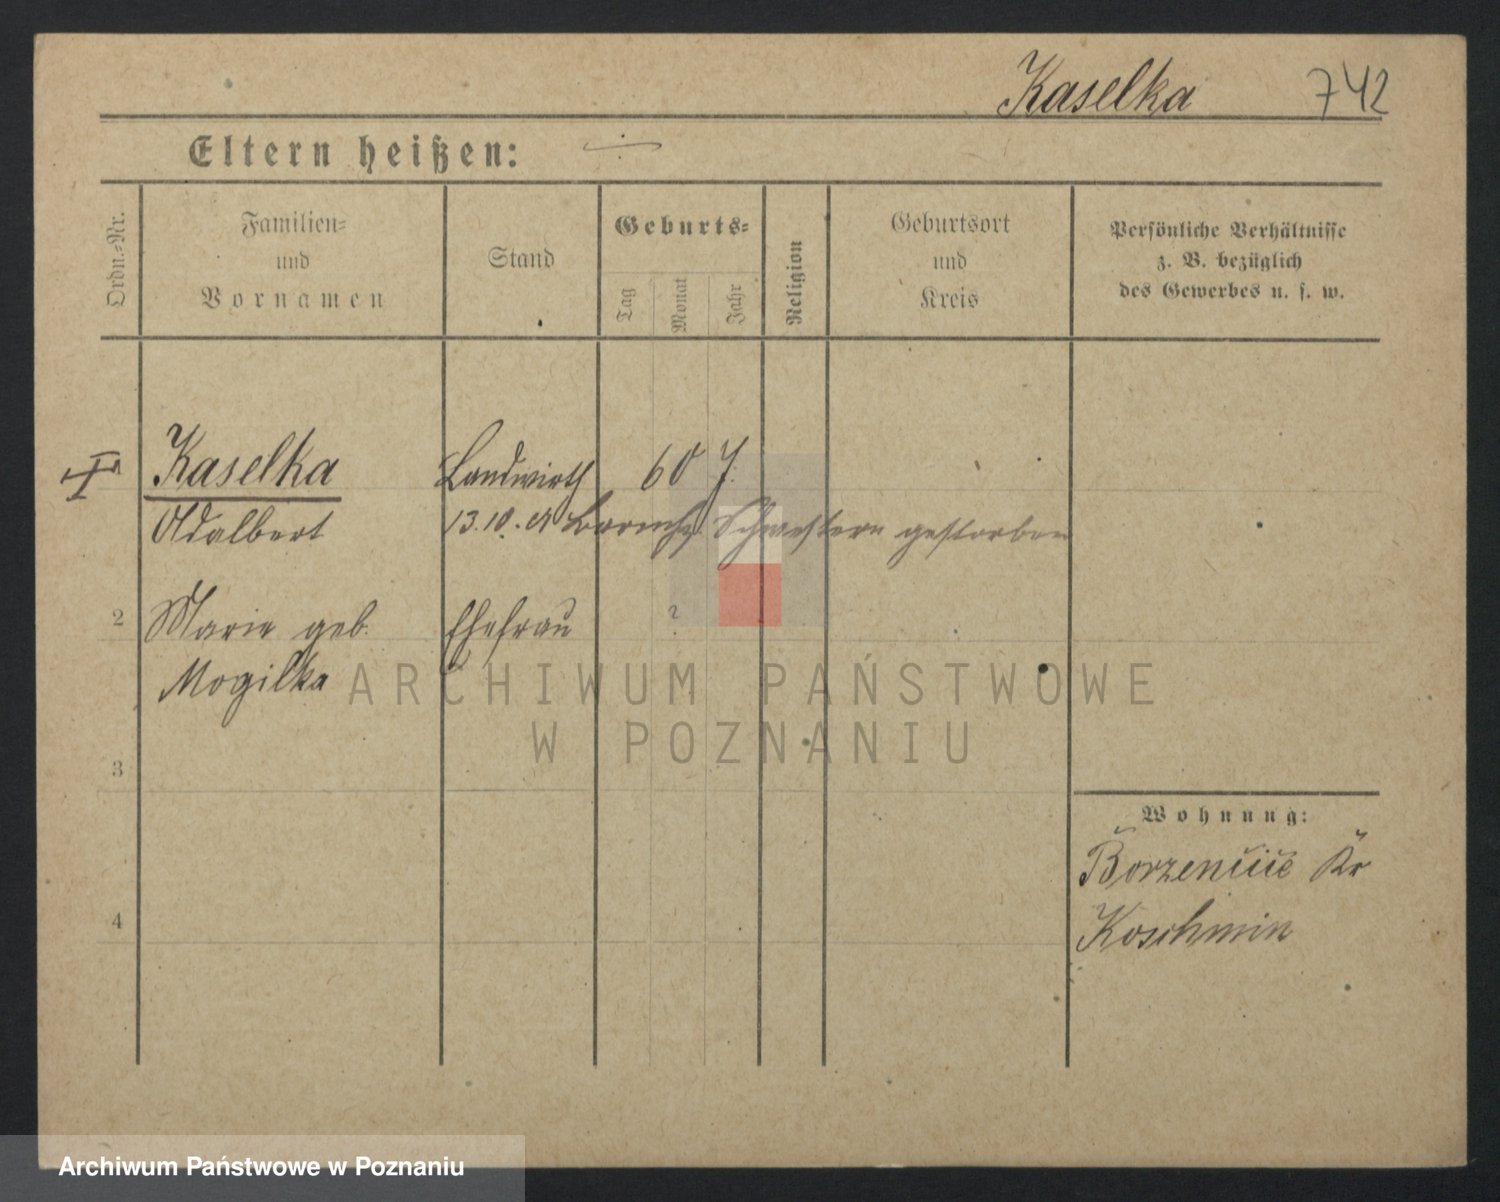 Kaselka 742
Eltern heißen:
Ordn.-Nr.
Familien=
und
Vornamen
Stand
Geburts=
Tag
Monat
Jahr
Religion
Geburtsort
und
Kreis
Persönliche Verhältnisse
z. B. bezüglich
des Gewerbes u. s. w.
Kaselka Landwirth 60 J.
Adalbert 13.10. Barmhz. Schwestern gestorben
2 Marie geb. Ehefrau ?
Mogilka
3
Wohnung:
Borzenciće Kr
4 Koschmin
ARCHIWUM PAŃSTWOWE
W POZNANIU
Archiwum Państwowe w Poznaniu